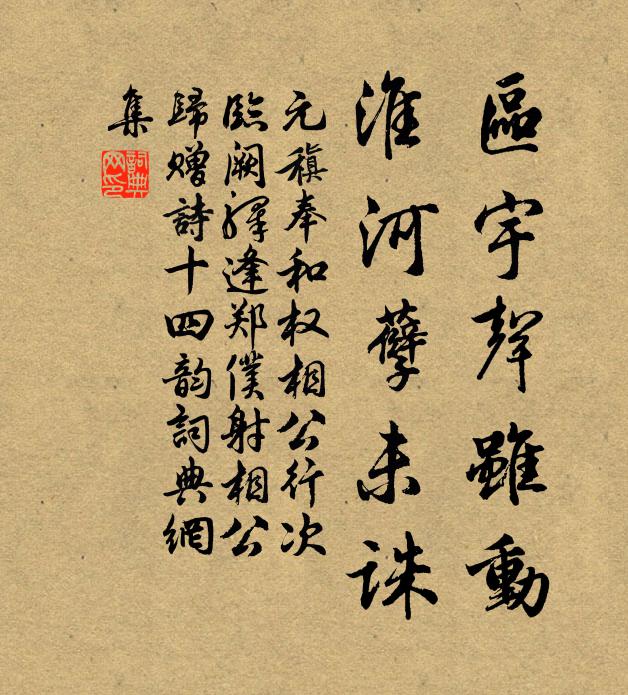 區宇聲雖動
淮河孽未誅
元稹奉和权相公行次
臨阙驛逢郑僕射相公
歸赠詩十四韵詞典網
集
詞典網印